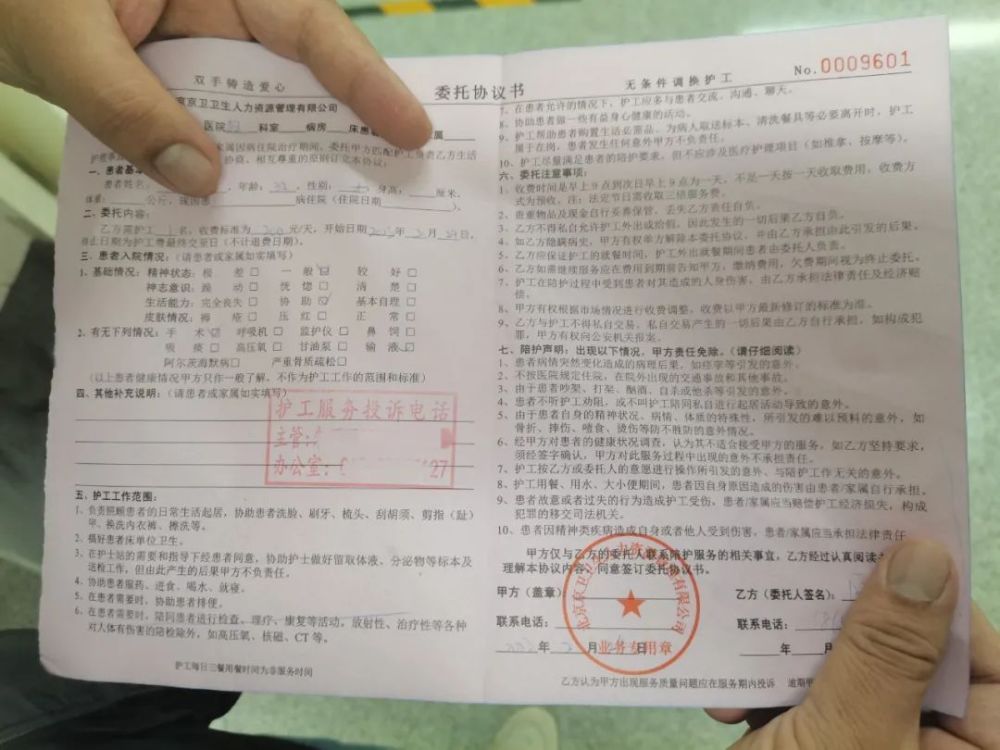 双手铸造爱心
委托协议书
无条件调换护工
No.0009601
京卫卫生人力资源管理有限公司
医院 科室 病房 床
家属因病住院治疗期间，委托甲方匹配护工负责乙方生活
协商、相互尊重的原则订立本协议：
一、患者基本
患者姓名： 年龄： 性别： 身高： 厘米，
体重： 公斤， 病住院（住院日期 ）。
二、委托内容：
乙方需护工1名，收费标准为 元/天，开始日期 年 月 日，
终止日期为护工费最终交至日（不计退费日期）。
三、患者入院情况：（请患者或家属如实填写）
1、基础情况：精神状态：极 差☐ 一 般☑ 较 好☐
神志意识：躁 动☐ 恍 惚☐ 清 楚☐
生活能力：完全丧失☐ 协 助☑ 基本自理☐
皮肤情况：褥 疮☐ 压 红☐ 正 常☐
2、有无下列情况：手 术☑ 呼吸机☐ 监护仪☐ 鼻 饲☐
吸 痰☐ 高压氧☐ 甘油泵☐ 输 液☐
阿尔茨海默病☐ 严重骨质疏松☐
（以上患者健康情况甲方只作一般了解，不作为护工工作的范围和标准）
四、其他补充说明：（请患者或家属如实填写）
护工服务投诉电话
主管：
办公室： 27
五、护工工作范围：
1、负责照顾患者的日常生活起居，协助患者洗脸、刷牙、梳头、刮胡须、剪指（趾）
甲、换洗内衣裤、擦洗等。
2、搞好患者床单位卫生。
3、在护士站的需要和指导下经患者同意，协助护士做好留取体液、分泌物等标本及
送检工作，但由此产生的后果甲方不负责任。
4、协助患者服药、进食、喝水、就寝。
5、在患者需要时，协助患者排便。
6、在患者需要时，陪同患者进行检查、理疗、康复等活动。放射性、治疗性等各种
对人体有伤害的陪检除外，如高压氧、核磁、CT等。
护工每日三餐用餐时间为非服务时间
7、在患者允许的情况下，护工应多与患者交流、沟通、聊天。
8、协助患者做一些有益身心健康的活动。
9、护工帮助患者购置生活必需品、为病人取送标本、清洗餐具等必要离开时，护工
属于在岗，患者发生任何意外甲方不负责任。
10、护工尽量满足患者的陪护要求，但不应涉及医疗护理项目（如推拿、按摩等）。
六、委托注意事项：
1、收费时间是早上9点到次日早上9点为一天，不足一天按一天收取费用，收费方
式为预收。注：法定节日需收取三倍服务费。
2、贵重物品及现金自行妥善保管，丢失乙方责任自负。
3、乙方不得私自允许护工外出或给假，因此发生的一切后果乙方自负。
4、如乙方隐瞒病史，甲方有权单方解除本委托协议，并由乙方承担由此引发的后果。
5、乙方应保证护工的就餐时间，护工外出就餐期间患者由委托人负责。
6、乙方如需继续服务应在费用到期前告知甲方，缴纳费用，欠费期间视为终止委托。
7、护工在陪护过程中受到患者对其造成的人身伤害，由乙方承担法律责任及经济赔
偿。
8、甲方有权根据市场情况进行收费调整，收费以甲方最新修订的标准为准。
9、乙方与护工不得私自交易，私自交易产生的一切后果由乙方自行承担，如构成犯
罪，甲方有权向公安机关报案。
七、陪护声明：出现以下情况，甲方责任免除。（请仔细阅读）
1、患者病情突然变化造成的病理后果，如痉挛等引发的意外。
2、不按医院规定住院，在院外出现的交通事故和其他事故。
3、由于患者吵架、打架、酗酒、自杀或他杀等引发的意外。
4、患者不听护工劝阻，或不叫护工陪同私自进行起居活动导致的意外。
5、由于患者自身的精神状况、病情、体质的特殊性，所引发的难以预料的意外，如
骨折、摔伤、噎食、烫伤等防不胜防的意外情况。
6、经甲方对患者的健康状况调查，认为其不适合接受甲方的服务，如乙方坚持要求，
须经签字确认，甲方对此服务过程中出现的意外不承担责任。
7、护工按乙方或委托人的意愿进行操作所引发的意外、与陪护工作无关的意外。
8、护工用餐、用水、大小便期间，患者因自身原因造成的伤害由患者/家属自行承担。
9、患者故意或者过失的行为造成护工受伤，患者/家属应当赔偿护工经济损失，构成
犯罪的移交司法机关。
10、患者因精神类疾病造成自身或者他人受到伤害，患者/家属应当承担法律责任
甲方仅与乙方的委托人联系陪护服务的相关事宜，乙方经过认真阅读
理解本协议内容，同意签订委托协议书。
甲方（盖章）
乙方（委托人签名）：
联系电话：
联系电话：
年 月 日
年 月
北京京卫 有限公司
业务专用章
乙方认为甲方出现服务质量问题应在服务期内投诉 逾期